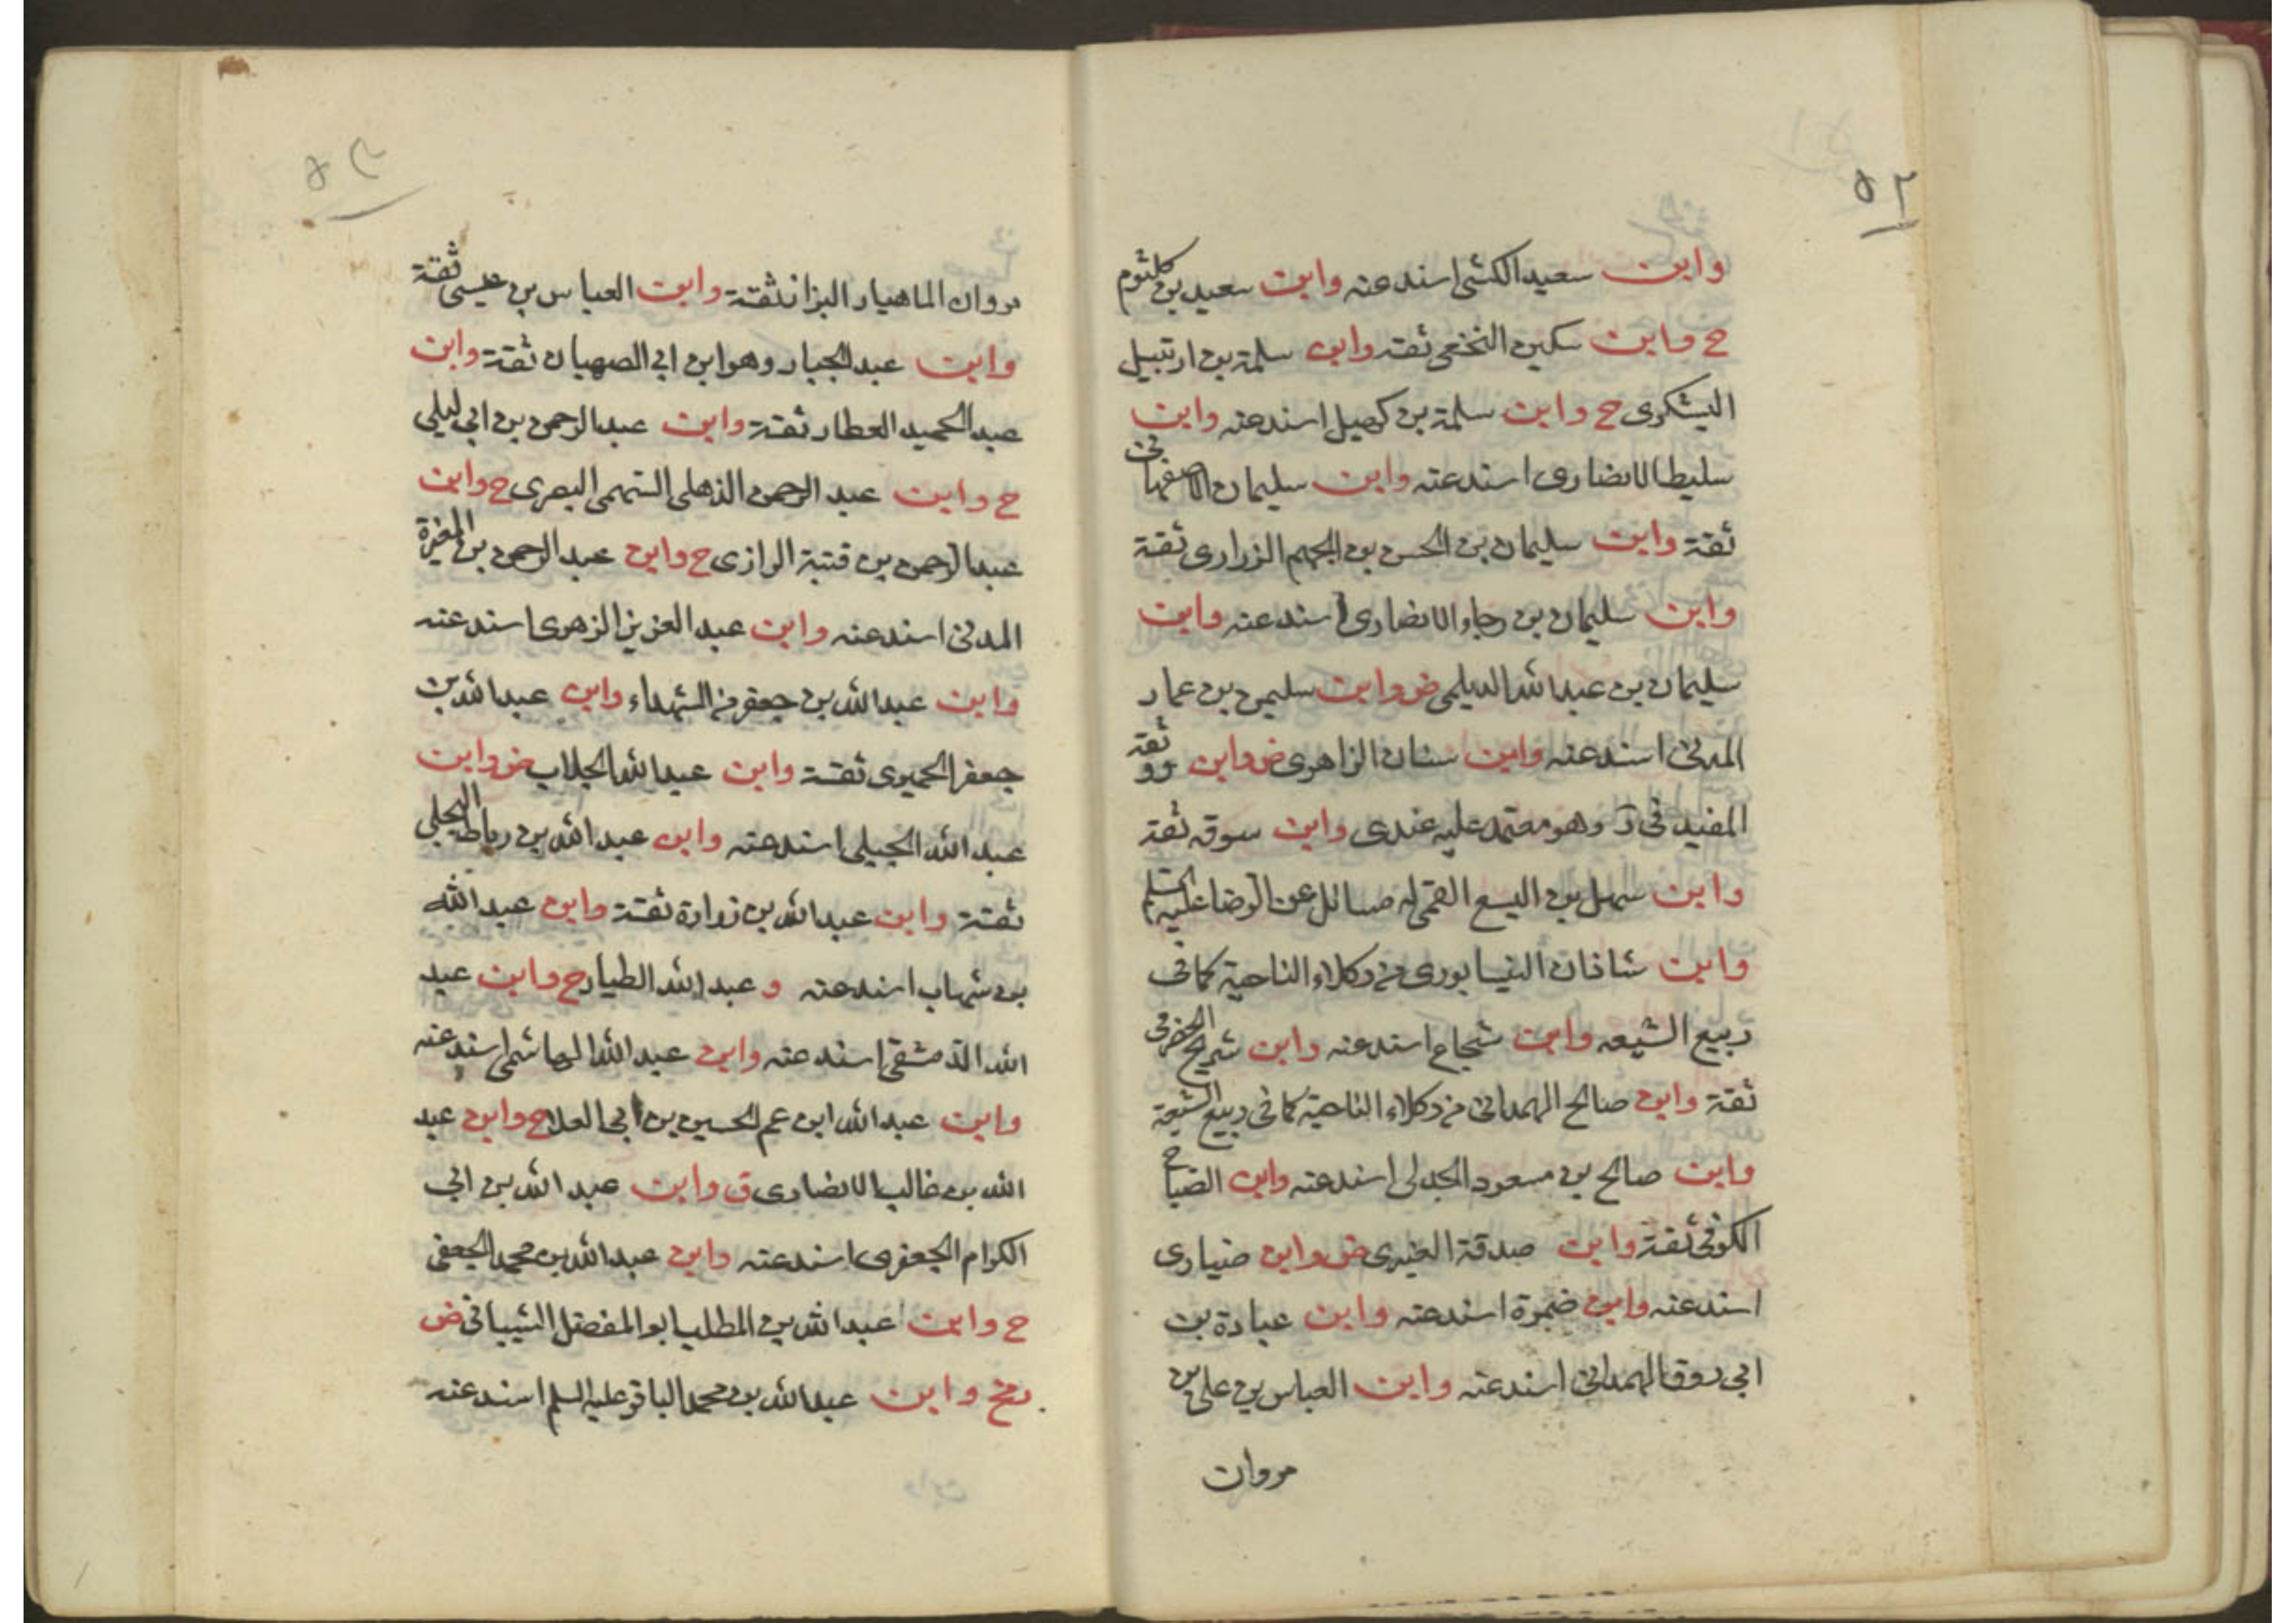 ٥٢
وابن سعيد الكشى اسند عنه وابن سعيد بن كلثوم
ح وابن سكين النخعى ثقة وابن سلمة بن ارتبيل
اليشكرى ح وابن سلمة بن كهيل اسند عنه وابن
سليط الانصارى اسند عنه وابن سليمان الاصفهانى
ثقة وابن سليمان بن الحسن بن الجهم الزرارى ثقة
وابن سليمان بن رجاء الانصارى اسند عنه وابن
سليمان بن عبد الله الديلمى ض وابن سليمن بن عمار
المدنى اسند عنه وابن سنان الزاهرى ض وابن ثقة
المفيد فى د وهو معتمد عليه عندى وابن سوقه ثقة
وابن سهل بن اليسع القمى له مسائل عن الرضا عليه السلم
وابن شاذان النيسابورى من وكلاء الناحية كما فى
ربيع الشيعه وابن شجاع اسند عنه وابن شريح الحضرمى
ثقة وابن صالح الهمدانى من وكلاء الناحية كما فى ربيع الشيعة
وابن صالح بن مسعود الجدلى اسند عنه وابن الصباح
الكوفى ثقة وابن صدقة العنبرى ض وابن ضبارى
اسند عنه وابن ضمرة اسند عنه وابن عبادة بن
ابى روق الهمدانى اسند عنه وابن العباس بن على بن
مروان
٥٣
مروان الماهيار البزاز ثقة وابن العباس بن عيسى ثقة
وابن عبد الجبار وهو ابن ابى الصهبان ثقة وابن
عبد الحميد العطار ثقة وابن عبد الرحمن بن ابى ليلى
ح وابن عبد الرحمن الذهلى السهمى البصرى ح وابن
عبد الرحمن بن قتبة الرازى ح وابن عبد الرحمن بن المغيرة
المدنى اسند عنه وابن عبد العزيز الزهرى اسند عنه
وابن عبد الله بن جعفر من الشهداء وابن عبد الله بن
جعفر الحميرى ثقة وابن عبد الله الجلاب ض وابن
عبد الله الجبيلى اسند عنه وابن عبد الله بن رباط البجلى
ثقة وابن عبد الله بن زرارة ثقة وابن عبد الله
بن شهاب اسند عنه و عبد الله الطيار ح وابن عبد
الله الدمشقى اسند عنه وابن عبد الله الهاشمى اسند عنه
وابن عبد الله ابن عم الحسين بن ابى العلا ح وابن عبد
الله بن غالب الانصارى ق وابن عبد الله بن ابى
الكرام الجعفرى اسند عنه وابن عبد الله بن محمد الجعفى
ح وابن عبد الله بن المطلب ابو المفضل الشيبانى ض
وابن عبد الله بن محمد الباقر عليه السلم اسند عنه